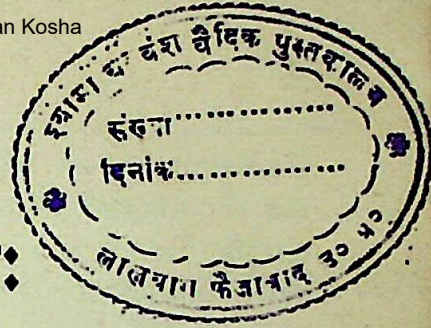 an Kosha
वंश वैदिक पुस्तकालय
संख्या....................
दिनांक....................
लालबाग फैजाबाद उ० प्र०